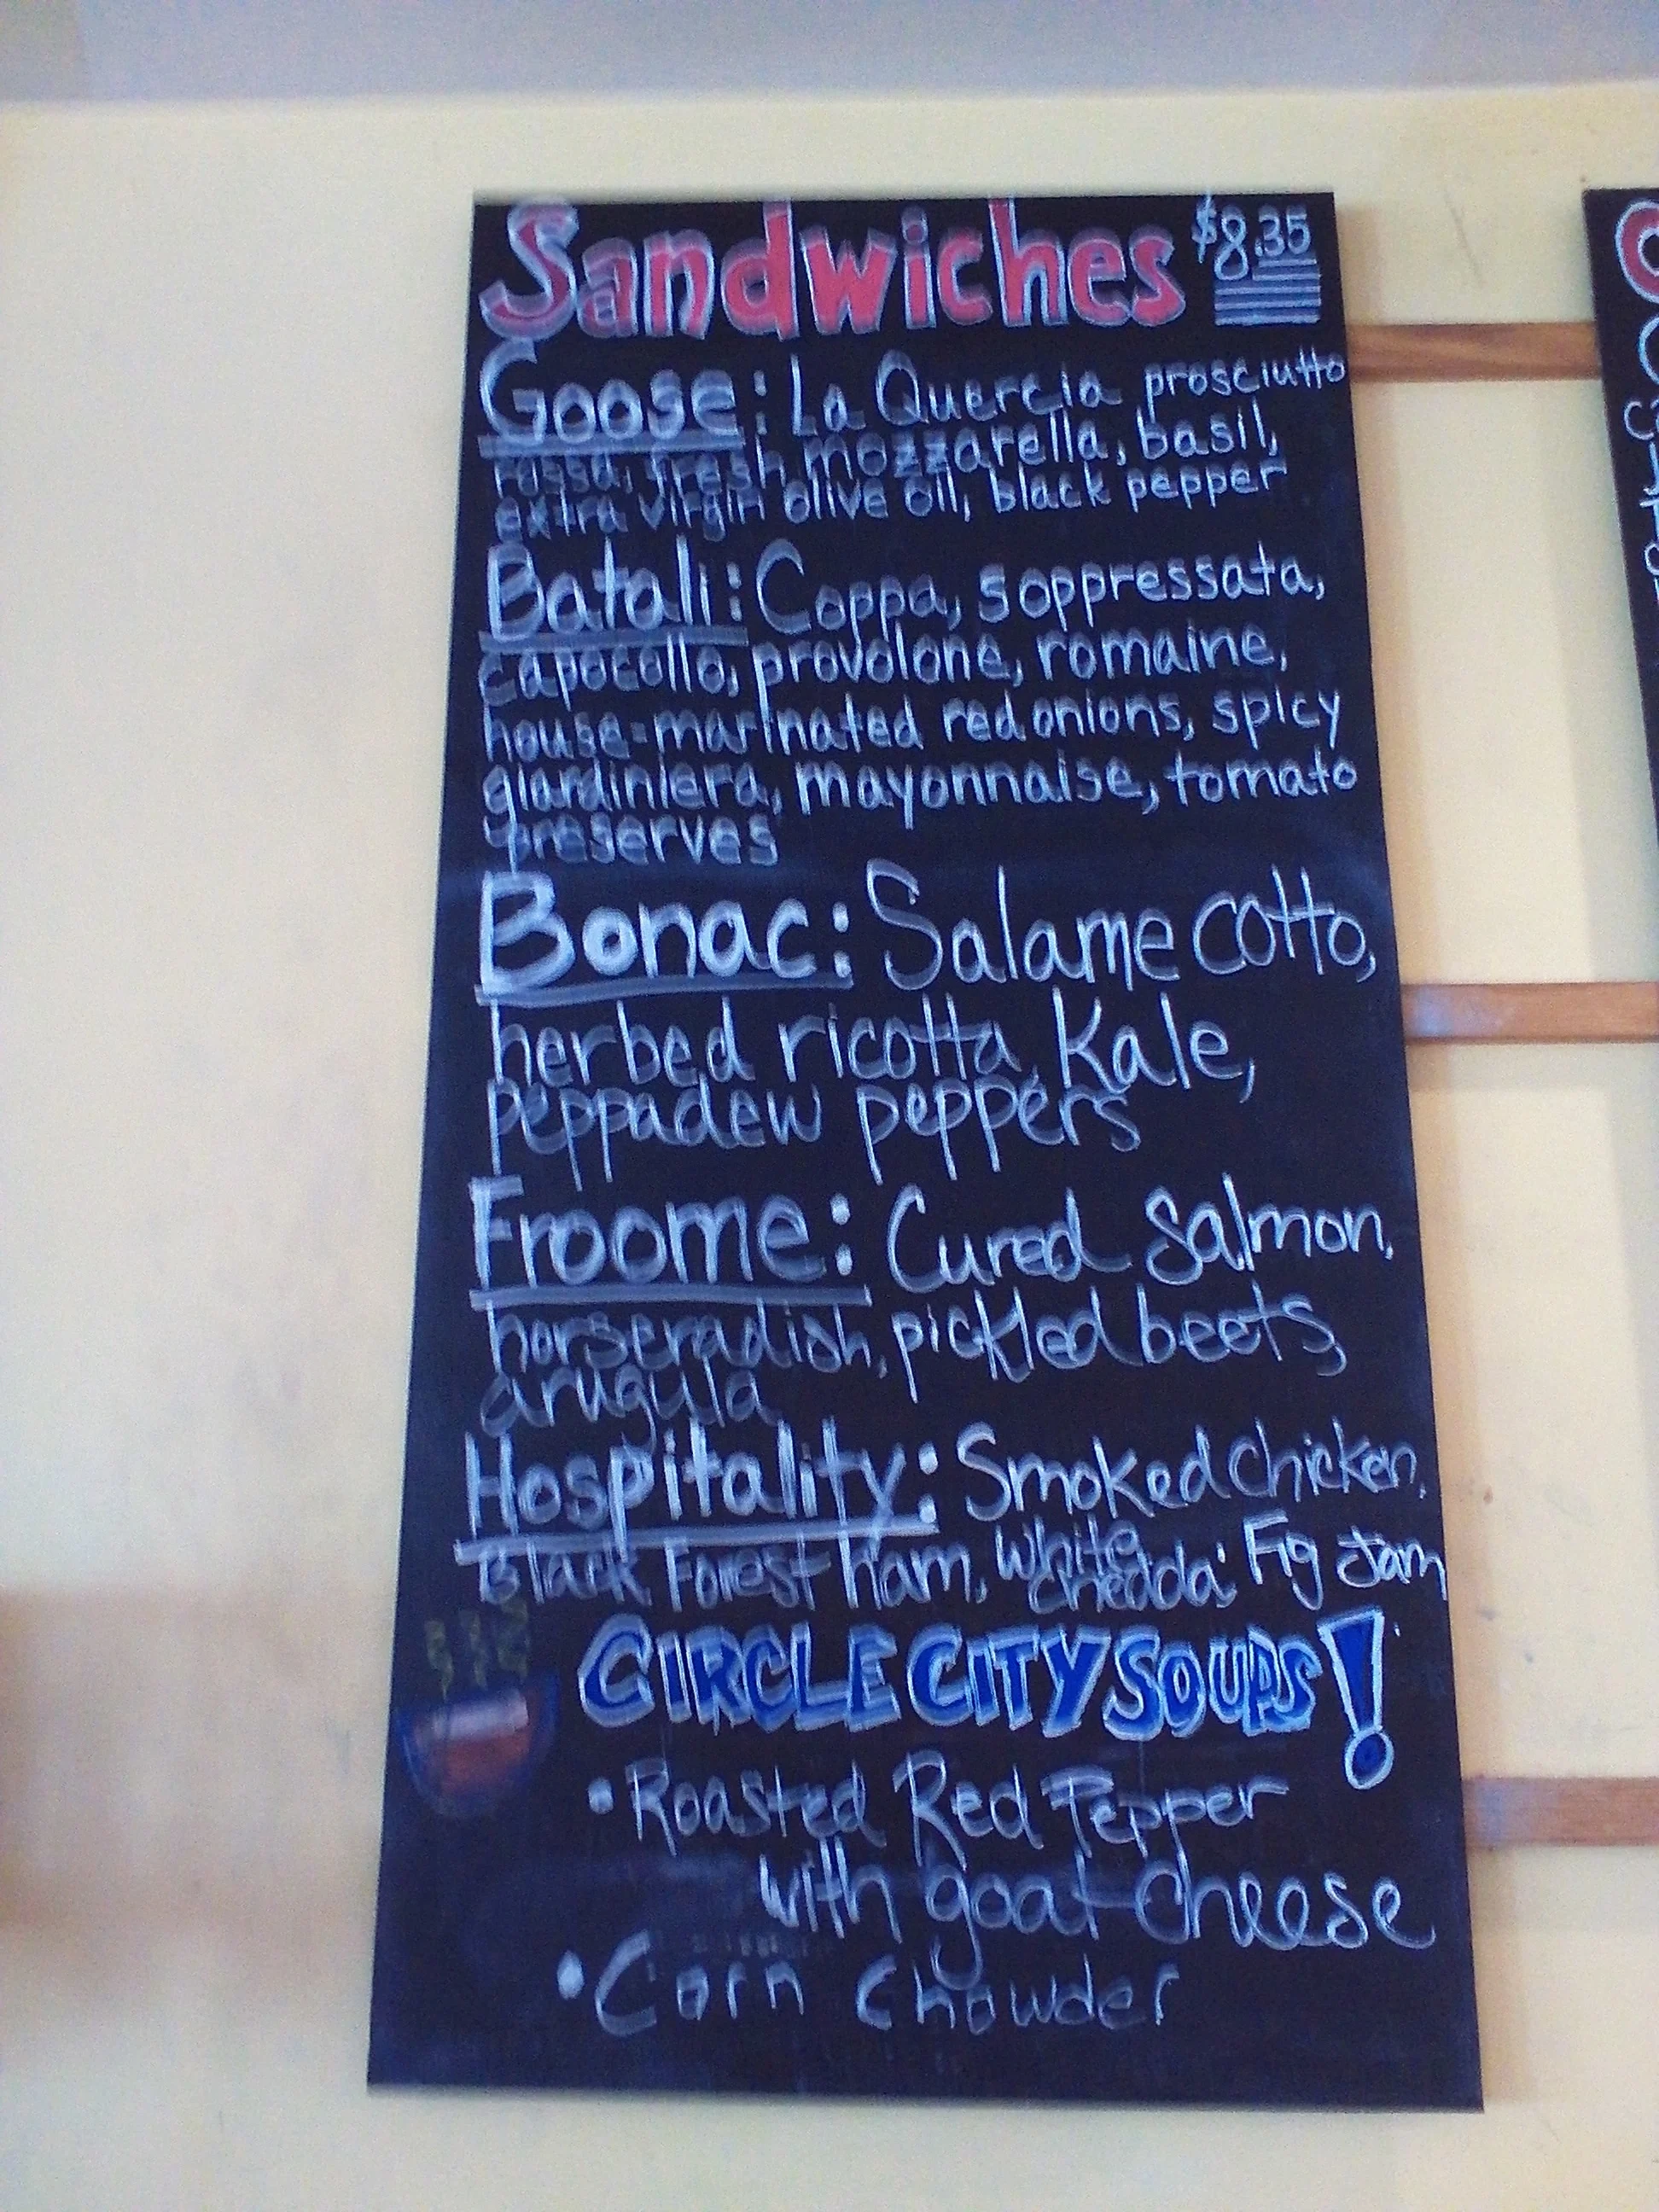 Sandwiches $8.35
Goose: La Quercia prosciutto
rossa, fresh mozzarella, basil,
extra virgin olive oil, black pepper
Batali: Coppa, soppressata,
capocollo, provolone, romaine,
house-marinated red onions, spicy
giardiniera, mayonnaise, tomato
preserves
Bonac: Salame cotto,
herbed ricotta, Kale,
peppadew peppers
Froome: Cured Salmon,
horseradish, pickled beets,
arugula
Hospitality: Smoked Chicken,
Black Forest ham, White Fig Jam
CIRCLE CITY SOUPS!
• Roasted Red Pepper
with goat cheese
• Corn Chowder